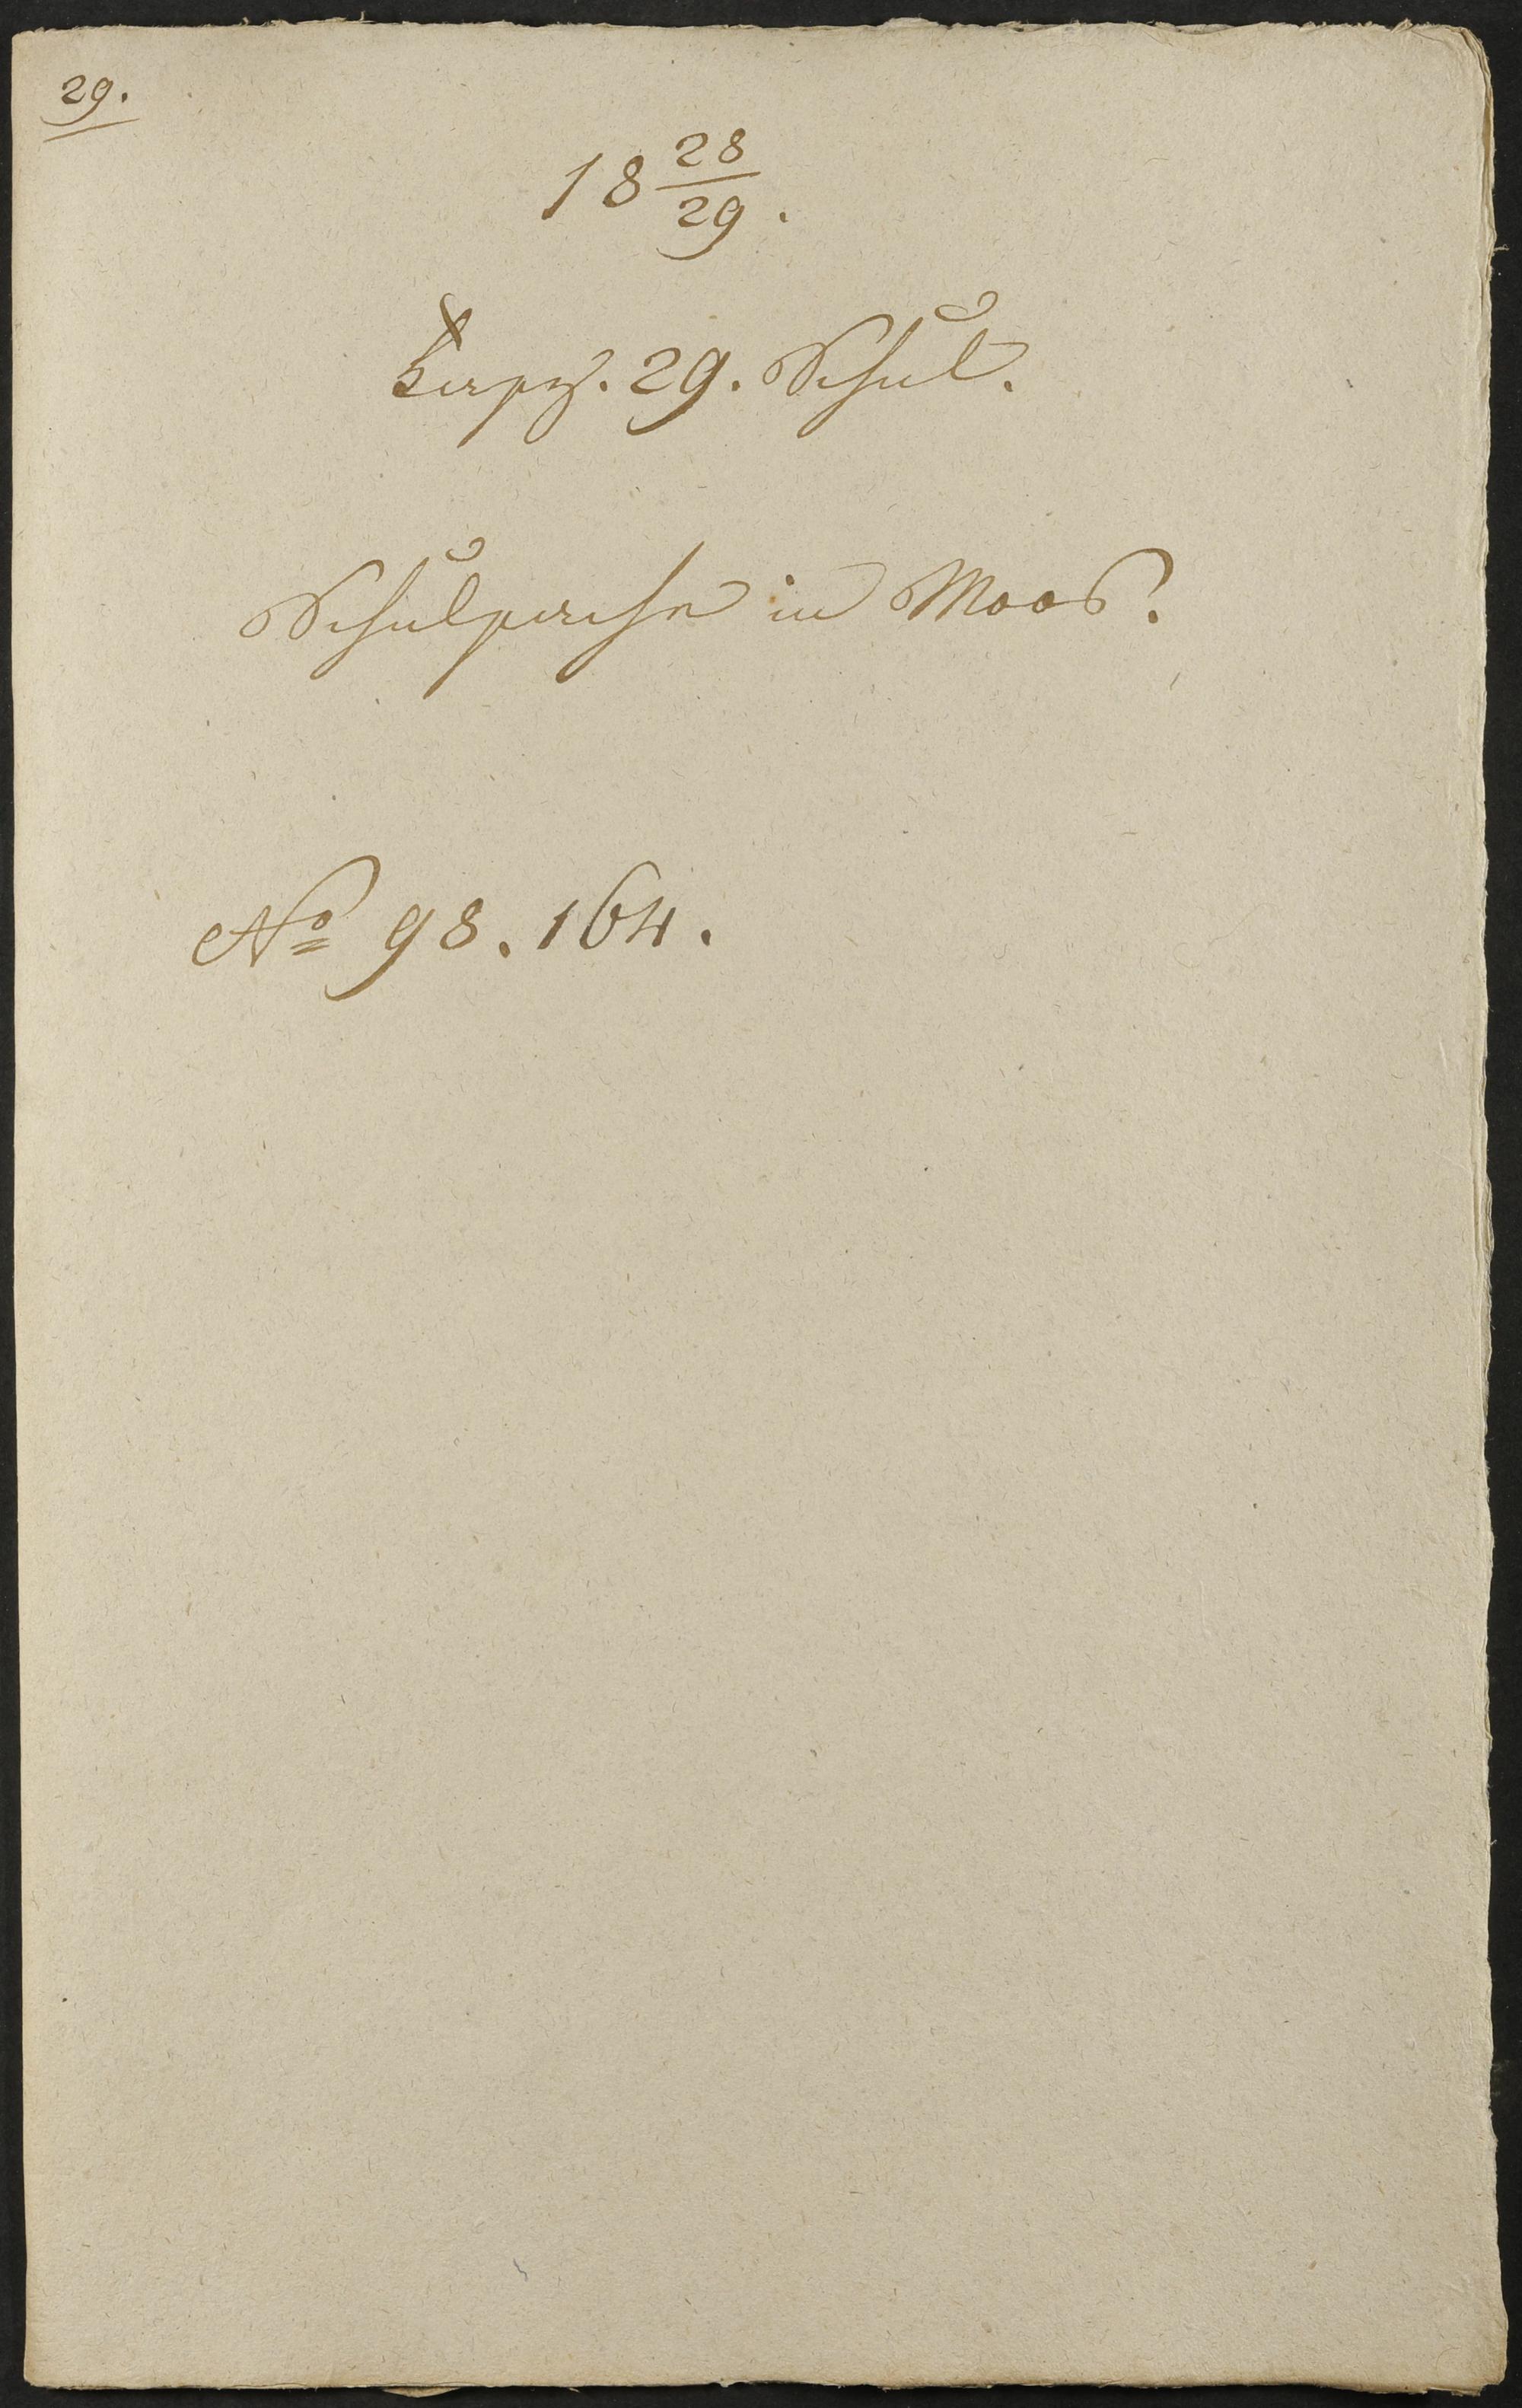 29.
18 28/29.
Fasz. 29. Schul.
Schulsache in Moos.
No 98. 164.